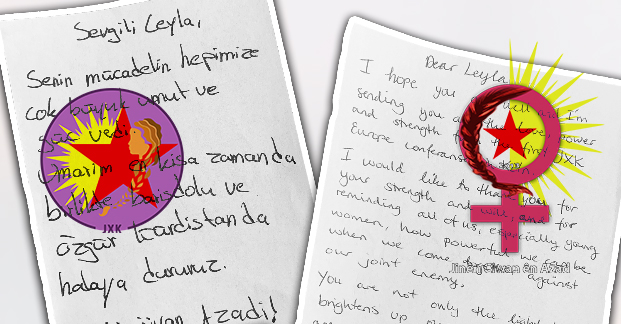 Sevgili Leyla,
Senin mücadelin hepimize
çok büyük umut ve
güç
Umarım en kısa zamanda
birlikte barışdolu ve
özgür Kurdistanda
halaya dururuz.
Azadî!
JXK
Dear Leyla,
I hope you well and I'm
sending you all the love, power
and strength first JXK
Europe
I would like to thank you for
your strength and will, and for
reminding all of us, especially young
women, how powerful we can be
when we come against
our joint enemy.
You are not only the light
brightens up
Jinên Ciwan ên Azad